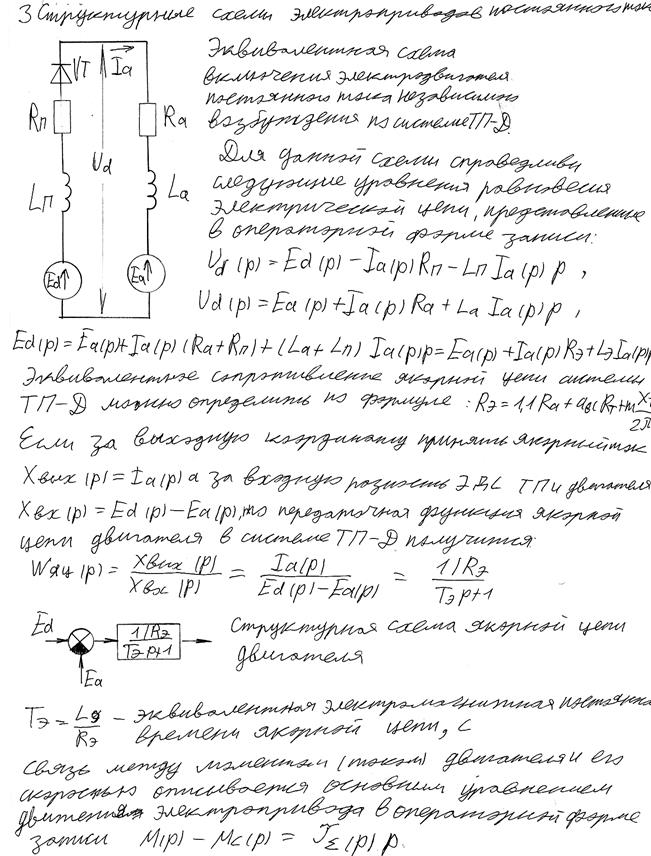 3 Структурные схемы электроприводов постоянного ток
VT Ia
Rп Ud Ra
Lп La
Ed Ea
Эквивалентная схема
включения электродвигател
постоянного тока независимо
возбуждения по системе ТП-Д.
Для данной схемы справедливы
следующие уравнения равновесия
электрической цепи, представленные
в операторной форме записи:
Ud(p) = Ed(p) - Ia(p)Rп - Lп Ia(p) p ,
Ud(p) = Ea(p) + Ia(p) Ra + La Ia(p)p ,
Ed(p) = Ea(p) + Ia(p) (Ra + Rп) + (La + Lп) Ia(p)p = Ea(p) + Ia(p) Rэ + Lэ Ia(p)p
Эквивалентное сопротивление якорной цепи системы
ТП-Д можно определить по формуле: Rэ = 1,1 Ra + aвс Rт + m X/2π
Если за выходную координату принять якорный ток
Xвых (p) = Ia(p) а за входную разность ЭДС ТП и двигателя
Xвх (p) = Ed(p) - Ea(p), то передаточная функция якорной
цепи двигателя в системе ТП-Д получится
Wяц(p) = Xвых (p)/Xвх (p) = Ia(p)/Ed(p) - Ea(p) = 1/Rэ/Tэp+1
Ed 1/Rэ/Tэp+1 Структурная схема якорной цепи
Ea двигателя
Tэ = Lэ/Rэ - эквивалентная электромагнитная постоянна
времени якорной цепи, с
Связь между моментом (током) двигателя и его
скоростью описывается основным уравнением
движения электропривода в операторной форме
записи M(p) - Mс(p) = J Σ (p) p.